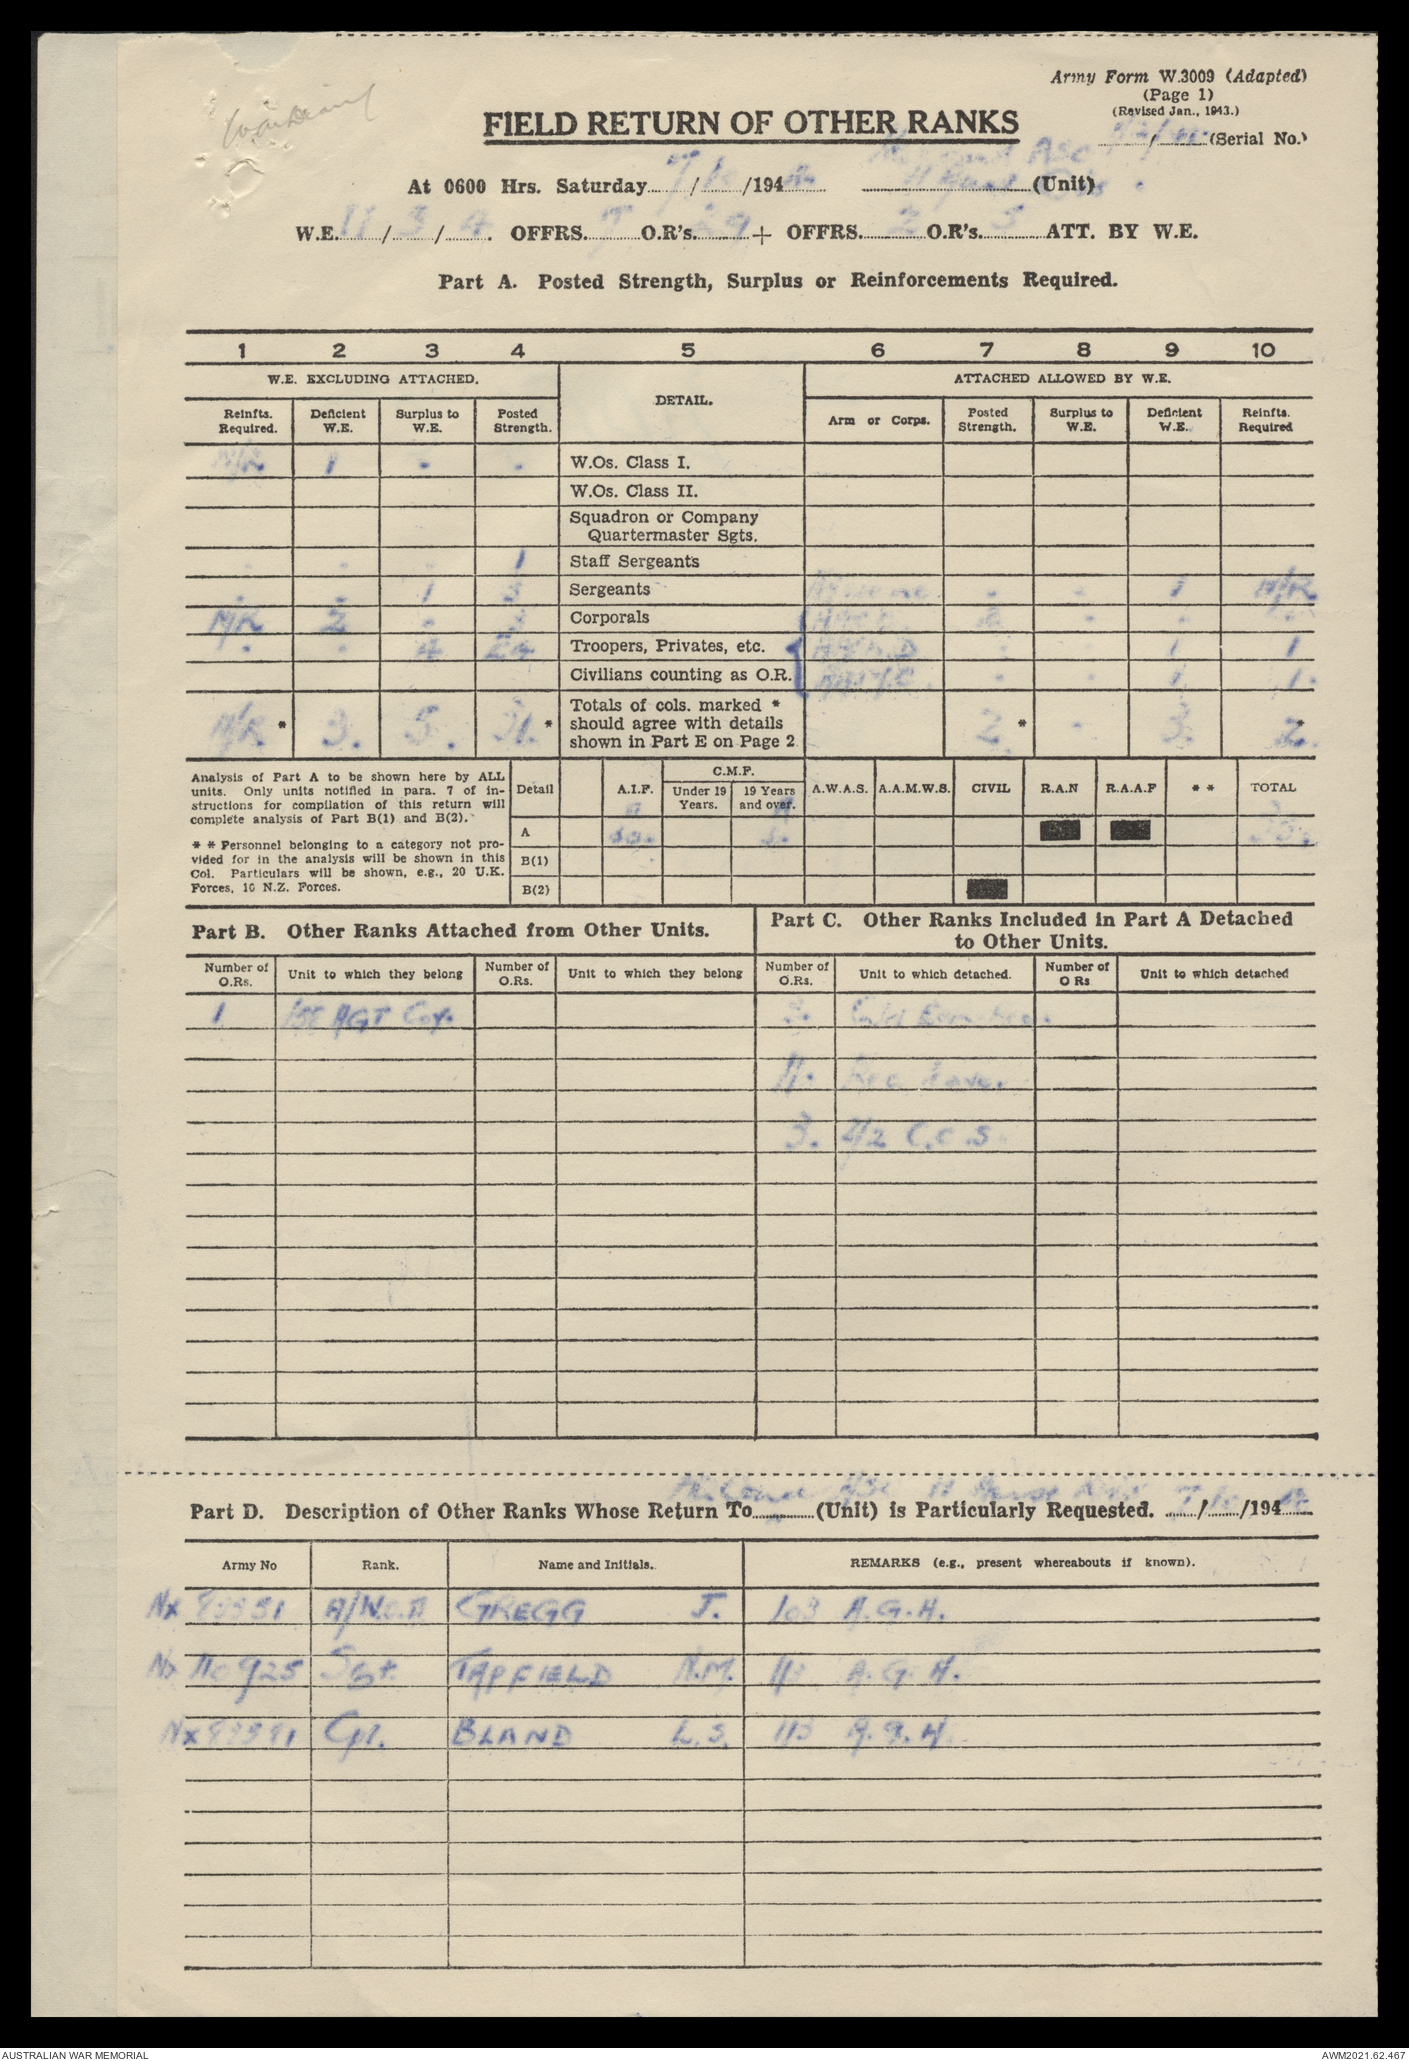 Army Form W.3009 (Adapted)
(Page 1)
(Revised Jan., 1943.)
War Diary
FIELD RETURN OF OTHER RANKS
(Serial No.)
At 0600 Hrs. Saturday 7/10/194 (Unit)
W.E. 11/3/4. OFFRS. 7 O.R's. 29 + OFFRS. 2 O.R's. 5 ATT. BY W.E.
Part A. Posted Strength, Surplus or Reinforcements Required.
1 2 3 4 5 6 7 8 9 10
W.E. EXCLUDING ATTACHED. DETAIL. ATTACHED ALLOWED BY W.E.
Reinfts. Required. Deficient W.E. Surplus to W.E. Posted Strength. Arm or Corps. Posted Strength. Surplus to W.E. Deficient W.E. Reinfts. Required
N/R 1 - . W.Os. Class I.
W.Os. Class II.
Squadron or Company
Quartermaster Sgts.
. - - 1 Staff Sergeants
. - 1 3 Sergeants - - 1 N/R
N/R 2 - 3 Corporals 2 - - -
. . 4 24 Troopers, Privates, etc. 1 1
Civilians counting as O.R. . - 1 1.
N/R * 3. 5. 31. * Totals of cols. marked * should agree with details shown in Part E on Page 2 2 * - 3. 2 *
Analysis of Part A to be shown here by ALL
units. Only units notified in para. 7 of in-
structions for compilation of this return will
complete analysis of Part B(1) and B(2).
* * Personnel belonging to a category not pro-
vided for in the analysis will be shown in this
Col. Particulars will be shown, e.g., 20 U.K.
Forces, 10 N.Z. Forces.
Detail A.I.F. C.M.F. Under 19 Years. 19 Years and over. A.W.A.S. A.A.M.W.S. CIVIL R.A.N R.A.A.F * * TOTAL
A
B(1)
B(2)
Part B. Other Ranks Attached from Other Units.
Number of O.Rs. Unit to which they belong Number of O.Rs. Unit to which they belong
1 1st AGT Coy.
Part C. Other Ranks Included in Part A Detached
to Other Units.
Number of O.Rs. Unit to which detached. Number of O Rs Unit to which detached
11.
3. 2/2 C.C.S.
Part D. Description of Other Ranks Whose Return To (Unit) is Particularly Requested. 7/10/194
Army No Rank. Name and Initials. REMARKS (e.g., present whereabouts if known).
A/W.O.II GREGG J. 103 A.G.H.
Nx 110925 Sgt. TAPFIELD N.M. 113 A.G.H.
Cpl. BLAND L.S. 113 A.G.H.
AUSTRALIAN WAR MEMORIAL
AWM2021.62.467